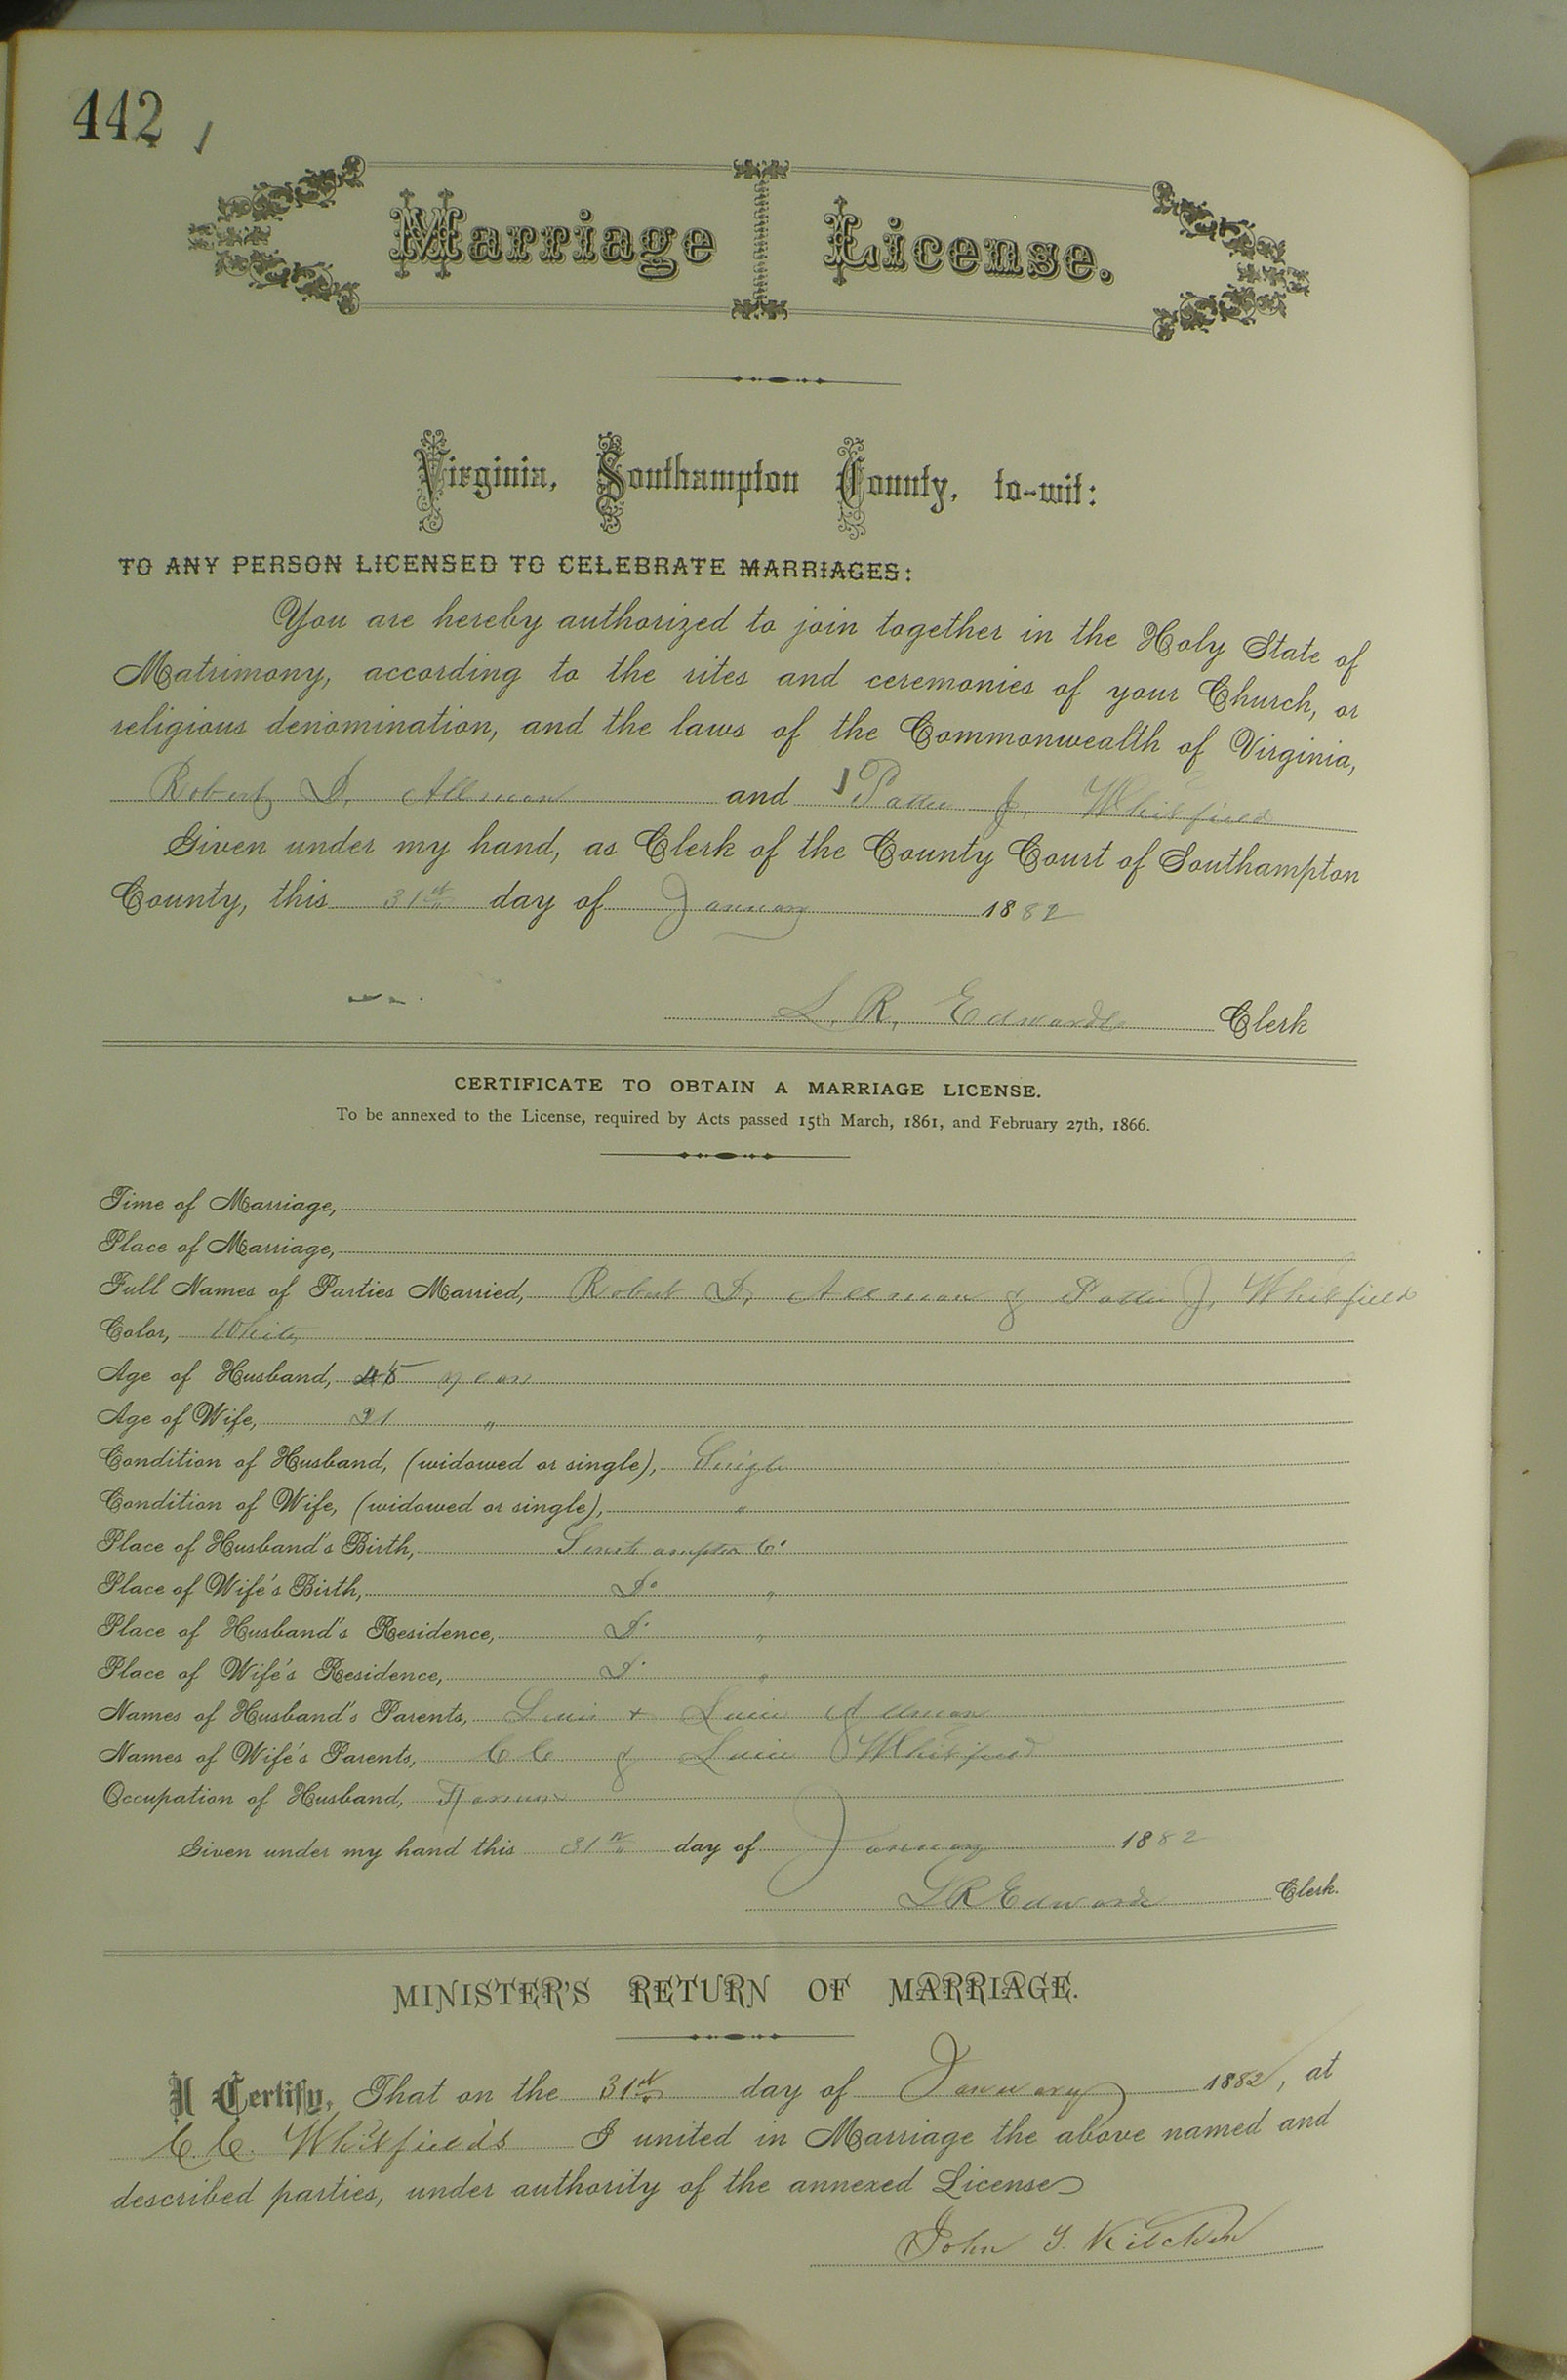 442
Marriage License.
Virginia, Southampton County, to-wit:
TO ANY PERSON LICENSED TO CELEBRATE MARRIAGES:
You are hereby authorized to join together in the Holy State of
Matrimony, according to the rites and ceremonies of your Church, or
religious denomination, and the laws of the Commonwealth of Virginia,
Robert D. Allmon and Pattie J. Whitfield
Given under my hand, as Clerk of the County Court of Southampton
County, this 31st day of January 1882
L. R. Edwards Clerk
CERTIFICATE TO OBTAIN A MARRIAGE LICENSE.
To be annexed to the License, required by Acts passed 15th March, 1861, and February 27th, 1866.
Time of Marriage,
Place of Marriage,
Full Names of Parties Married, Robert D. Allmon & Pattie J. Whitfield
Color, White
Age of Husband, 45 years
Age of Wife, 21 "
Condition of Husband, (widowed or single), Single
Condition of Wife, (widowed or single), "
Place of Husband's Birth, Southampton Co
Place of Wife's Birth, Do "
Place of Husband's Residence, Do "
Place of Wife's Residence, Do "
Names of Husband's Parents, + Allmon
Names of Wife's Parents, C C & Whitfield
Occupation of Husband, Farmer
Given under my hand this 31st day of January 1882
L R Edwards Clerk.
MINISTER'S RETURN OF MARRIAGE.
I Certify, That on the 31st day of January 1882, at
C. C. Whitfield's I united in Marriage the above named and
described parties, under authority of the annexed License
John Kitchen